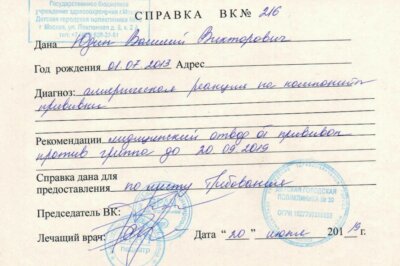 Государственное бюджетное
учреждение здравоохранения
Детская городская поликлиника
СПРАВКА ВК № 216
Дана Юдин Василий Викторович
Год рождения 01.07.2013 Адрес
Диагноз: аллергическая реакция на компонент
прививки
Рекомендации медицинский отвод от прививок
против гриппа до 20.09.2019
Справка дана для
предоставления по месту требования
Председатель ВК:
ДЕТСКАЯ ГОРОДСКАЯ
Лечащий врач: Дата "20" июля 2019 г.